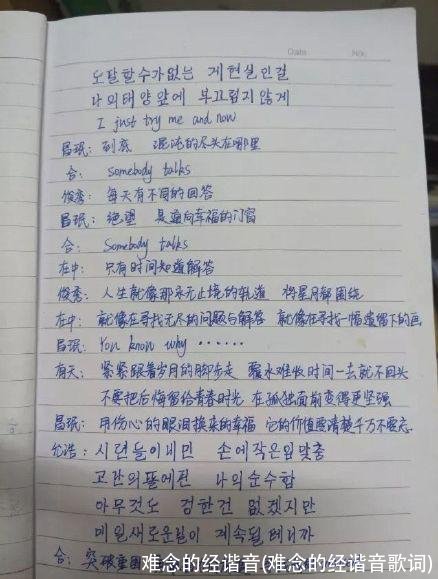 Date
No.
도달할수가없는 게현실인걸
나의태양앞에 부끄럽지않게
I just try me and now
昌珉: 到底 混沌的尽头在哪里
合: somebody talks
俊秀: 每天有不同的回答
昌珉: 绝望 是通向幸福的门窗
合: Somebody talks
在中: 只有时间知道解答
俊秀: 人生就像那永无止境的轨道 将星月都围绕
在中: 就像在寻找无尽的问题与解答 就像在寻找一幅遗留下的画
昌珉: You know why ······
有天: 紧紧跟着岁月的脚步走 覆水难收时间一去就不回头
不要把后悔留给青春时光 在孤独面前变得更坚强
昌珉: 用伤心的眼泪换来的幸福 它的价值要清楚千万不要忘
允浩: 시련들이내민 손에작은입맞춤
고난의품에핀 나의순수함
아무것도 정한건 없겠지만
매일새로운일이 계속될테니까
合: 突破重围
难念的经谐音(难念的经谐音歌词)